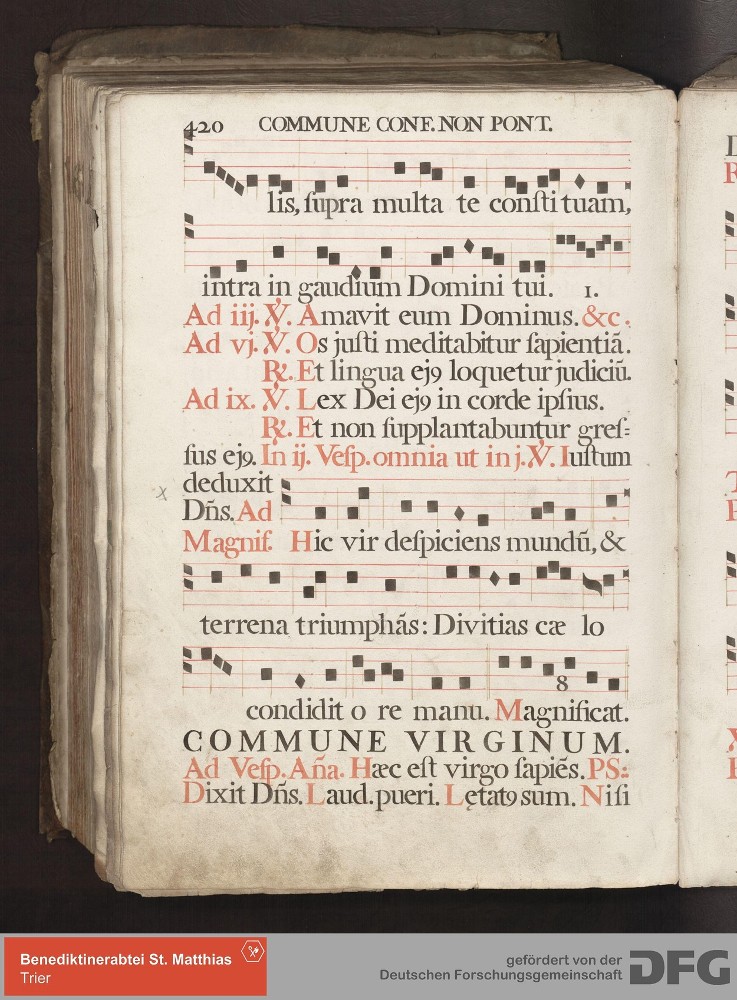 420 COMMUNE CONF. NON PONT.
lis, ſupra multa te conſtituam,
intra in gaudium Domini tui. 1.
Ad iij. ℣. Amavit eum Dominus. &c.
Ad vj. ℣. Os juſti meditabitur ſapientiã.
℟. Et lingua ejꝰ loquetur judiciũ.
Ad ix. ℣. Lex Dei ejꝰ in corde ipſius.
℟. Et non ſupplantabuntur greſ:
ſus ejꝰ. In ij. Veſp. omnia ut in j. ℣. Iuſtum
deduxit
Dñs. Ad
Magnif. Hic vir deſpiciens mundũ, &
terrena triumphãs: Divitias cæ lo
8
condidit o re manu. Magnificat.
COMMUNE VIRGINUM.
Ad Veſp. Aña. Hæc eſt virgo ſapiẽs. PS:
Dixit Dñs. Laud. pueri. Lętatꝰ sum. Niſi
Benediktinerabtei St. Matthias
Trier
gefördert von der
Deutschen Forschungsgemeinschaft
DFG